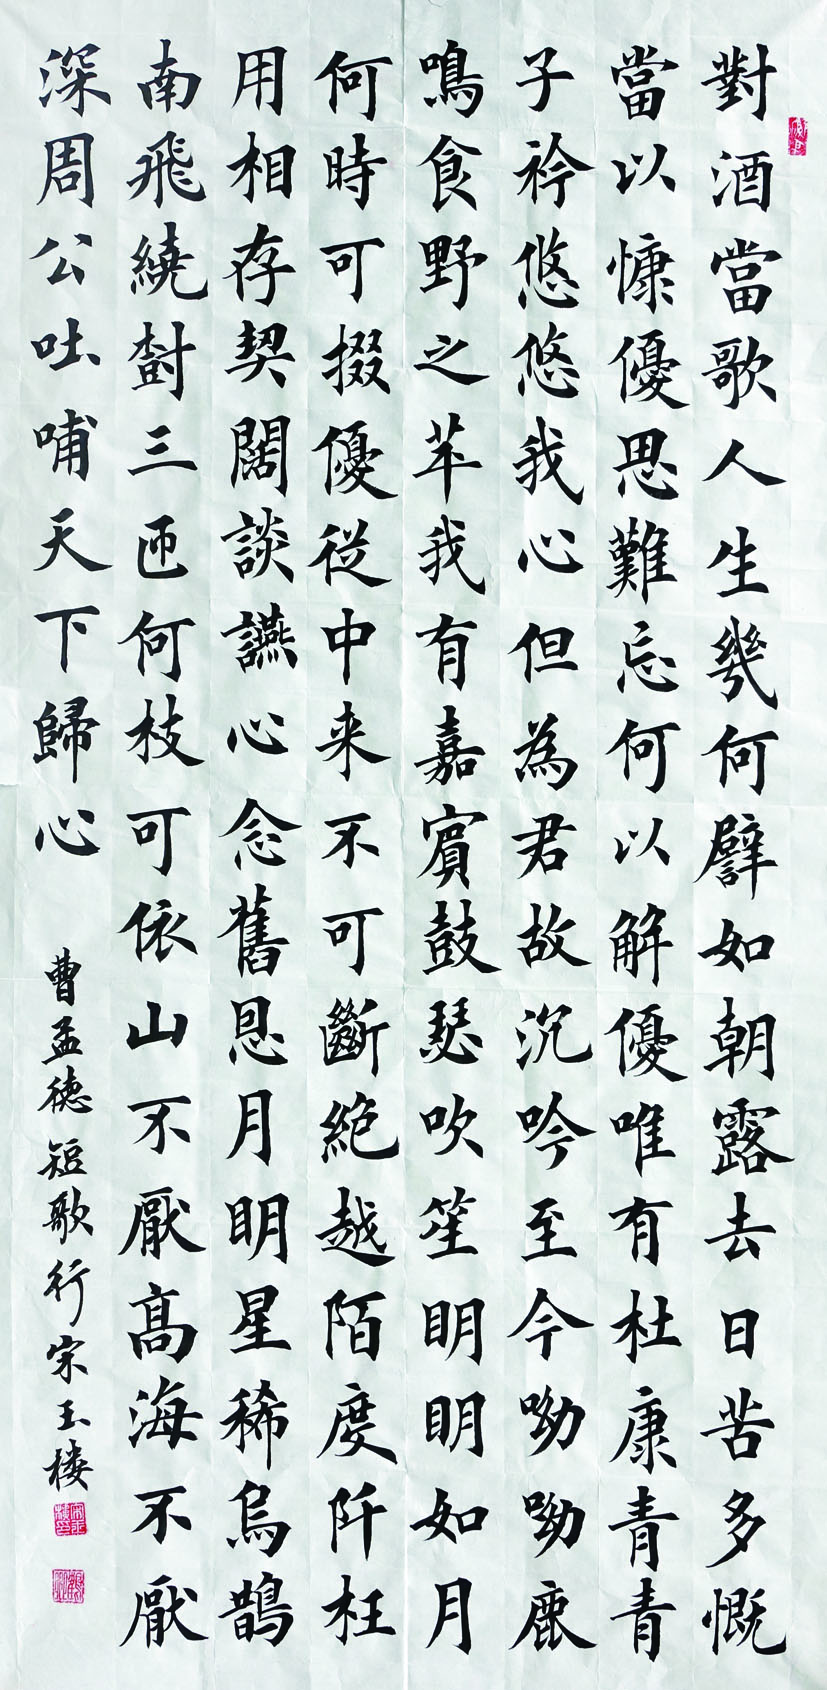 對酒當歌人生幾何譬如朝露去日苦多慨
當以慷優思難忘何以解優唯有杜康青青
子衿悠悠我心但為君故沉吟至今呦呦鹿
鳴食野之苹我有嘉賓鼓瑟吹笙明明如月
何時可掇優從中来不可斷絕越陌度阡枉
用相存契闊談讌心念舊恩月明星稀烏鵲
南飛繞樹三匝何枝可依山不厭高海不厭
深周公吐哺天下歸心
曹孟德短歌行宋玉楼